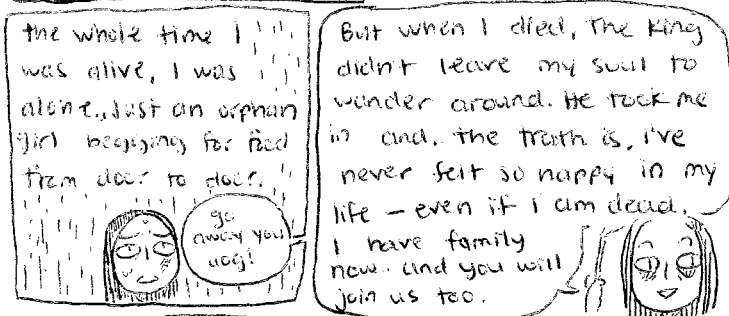 the whole time I
was alive, I was
alone, Just an orphan
girl begging for food
from door to door.
go
away you
dog!
But when I died, The King
didn't leave my soul to
wander around. He took me
in and, the truth is, I've
never felt so happy in my
life – even if I am dead.
I have family
now. and you will
join us too.